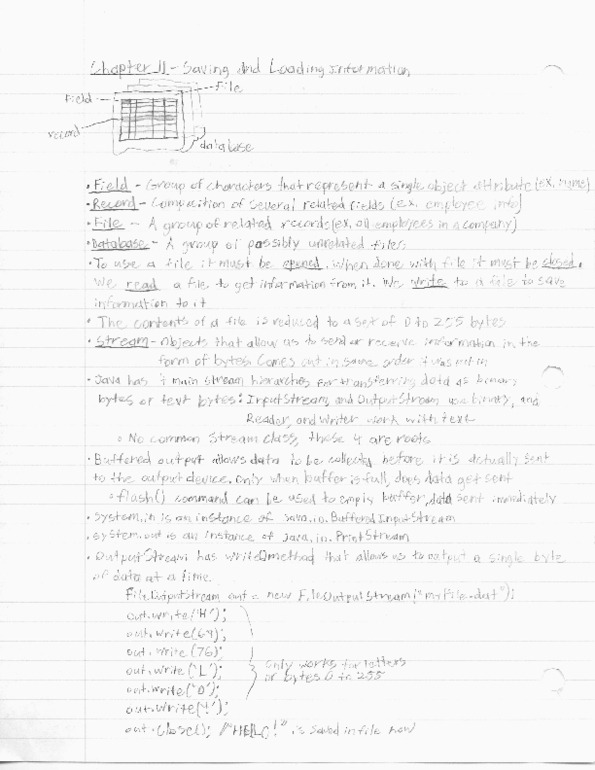 Chapter 11 - Saving and Loading Information
File
Field
record
database
• Field - Group of characters that represent a single object attribute (ex. name)
• Record - Composition of several related fields (ex. employee info)
• File - A group of related records (ex. all employees in a company)
• Database - A group of possibly unrelated files
• To use a file it must be opened. When done with file it must be closed.
We read a file to get information from it. We write to a file to save
information to it
• The contents of a file is reduced to a set of 0 to 255 bytes
• Stream - Objects that allow us to send or receive information in the
form of bytes. Comes out in same order it was put in
• Java has 4 main stream hierarches for transferring data as binary
bytes or text bytes: InputStream, and OutputStream use binary, and
Reader, and Writer work with text
o No common Stream class, these 4 are roots
• Buffered output allows data to be collected before it is actually sent
to the output device. Only when buffer is full, does data get sent
o flash() command can be used to empty buffer, data sent immediately
• System.in is an instance of java.io.BufferedInputStream
• System.out is an instance of java.io.PrintStream
• OutputStream has write() method that allows us to output a single byte
of data at a time.
FileOutputStream out = new FileOutputStream("myFile.dat");
out.write('H');
out.write(69);
out.write(76);
out.write('L');
only works for letters
or bytes 0 to 255
out.write('O');
out.write('!');
out.close(); //"HELLO!" is saved in file now